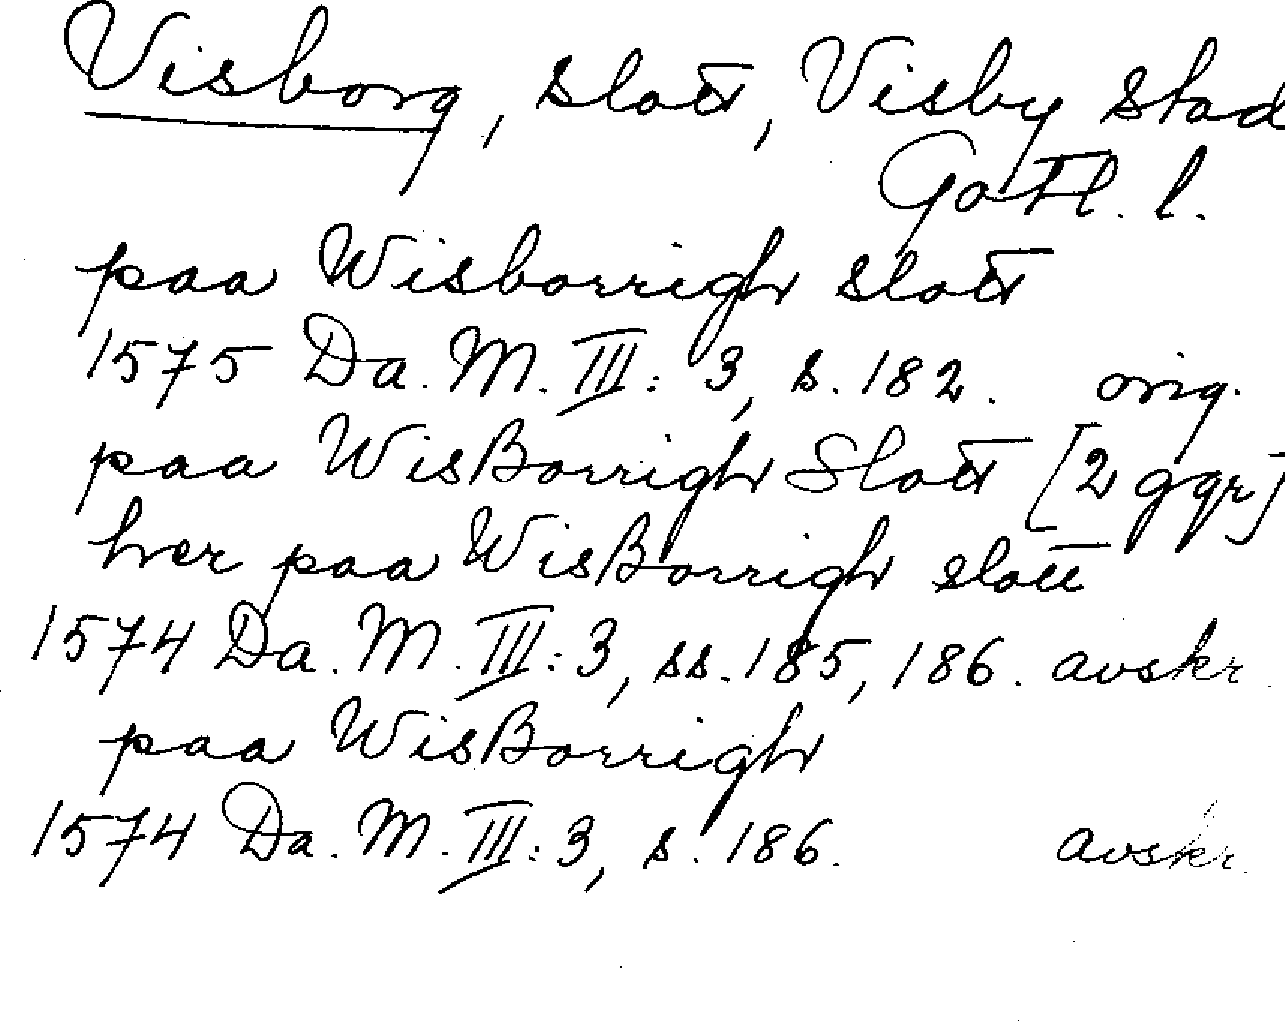 Visborg, slott, Visby stad
Gotl. l.
paa Wisborrigh slott
1575 Da. M. III: 3, s. 182. orig.
paa WisBorrigh Slott [2 ggr]
hver paa WisBorrigh slott
1574 Da. M. III: 3, ss. 185, 186. avskr.
paa WisBorrigh
1574 Da. M. III: 3, s. 186. avskr.